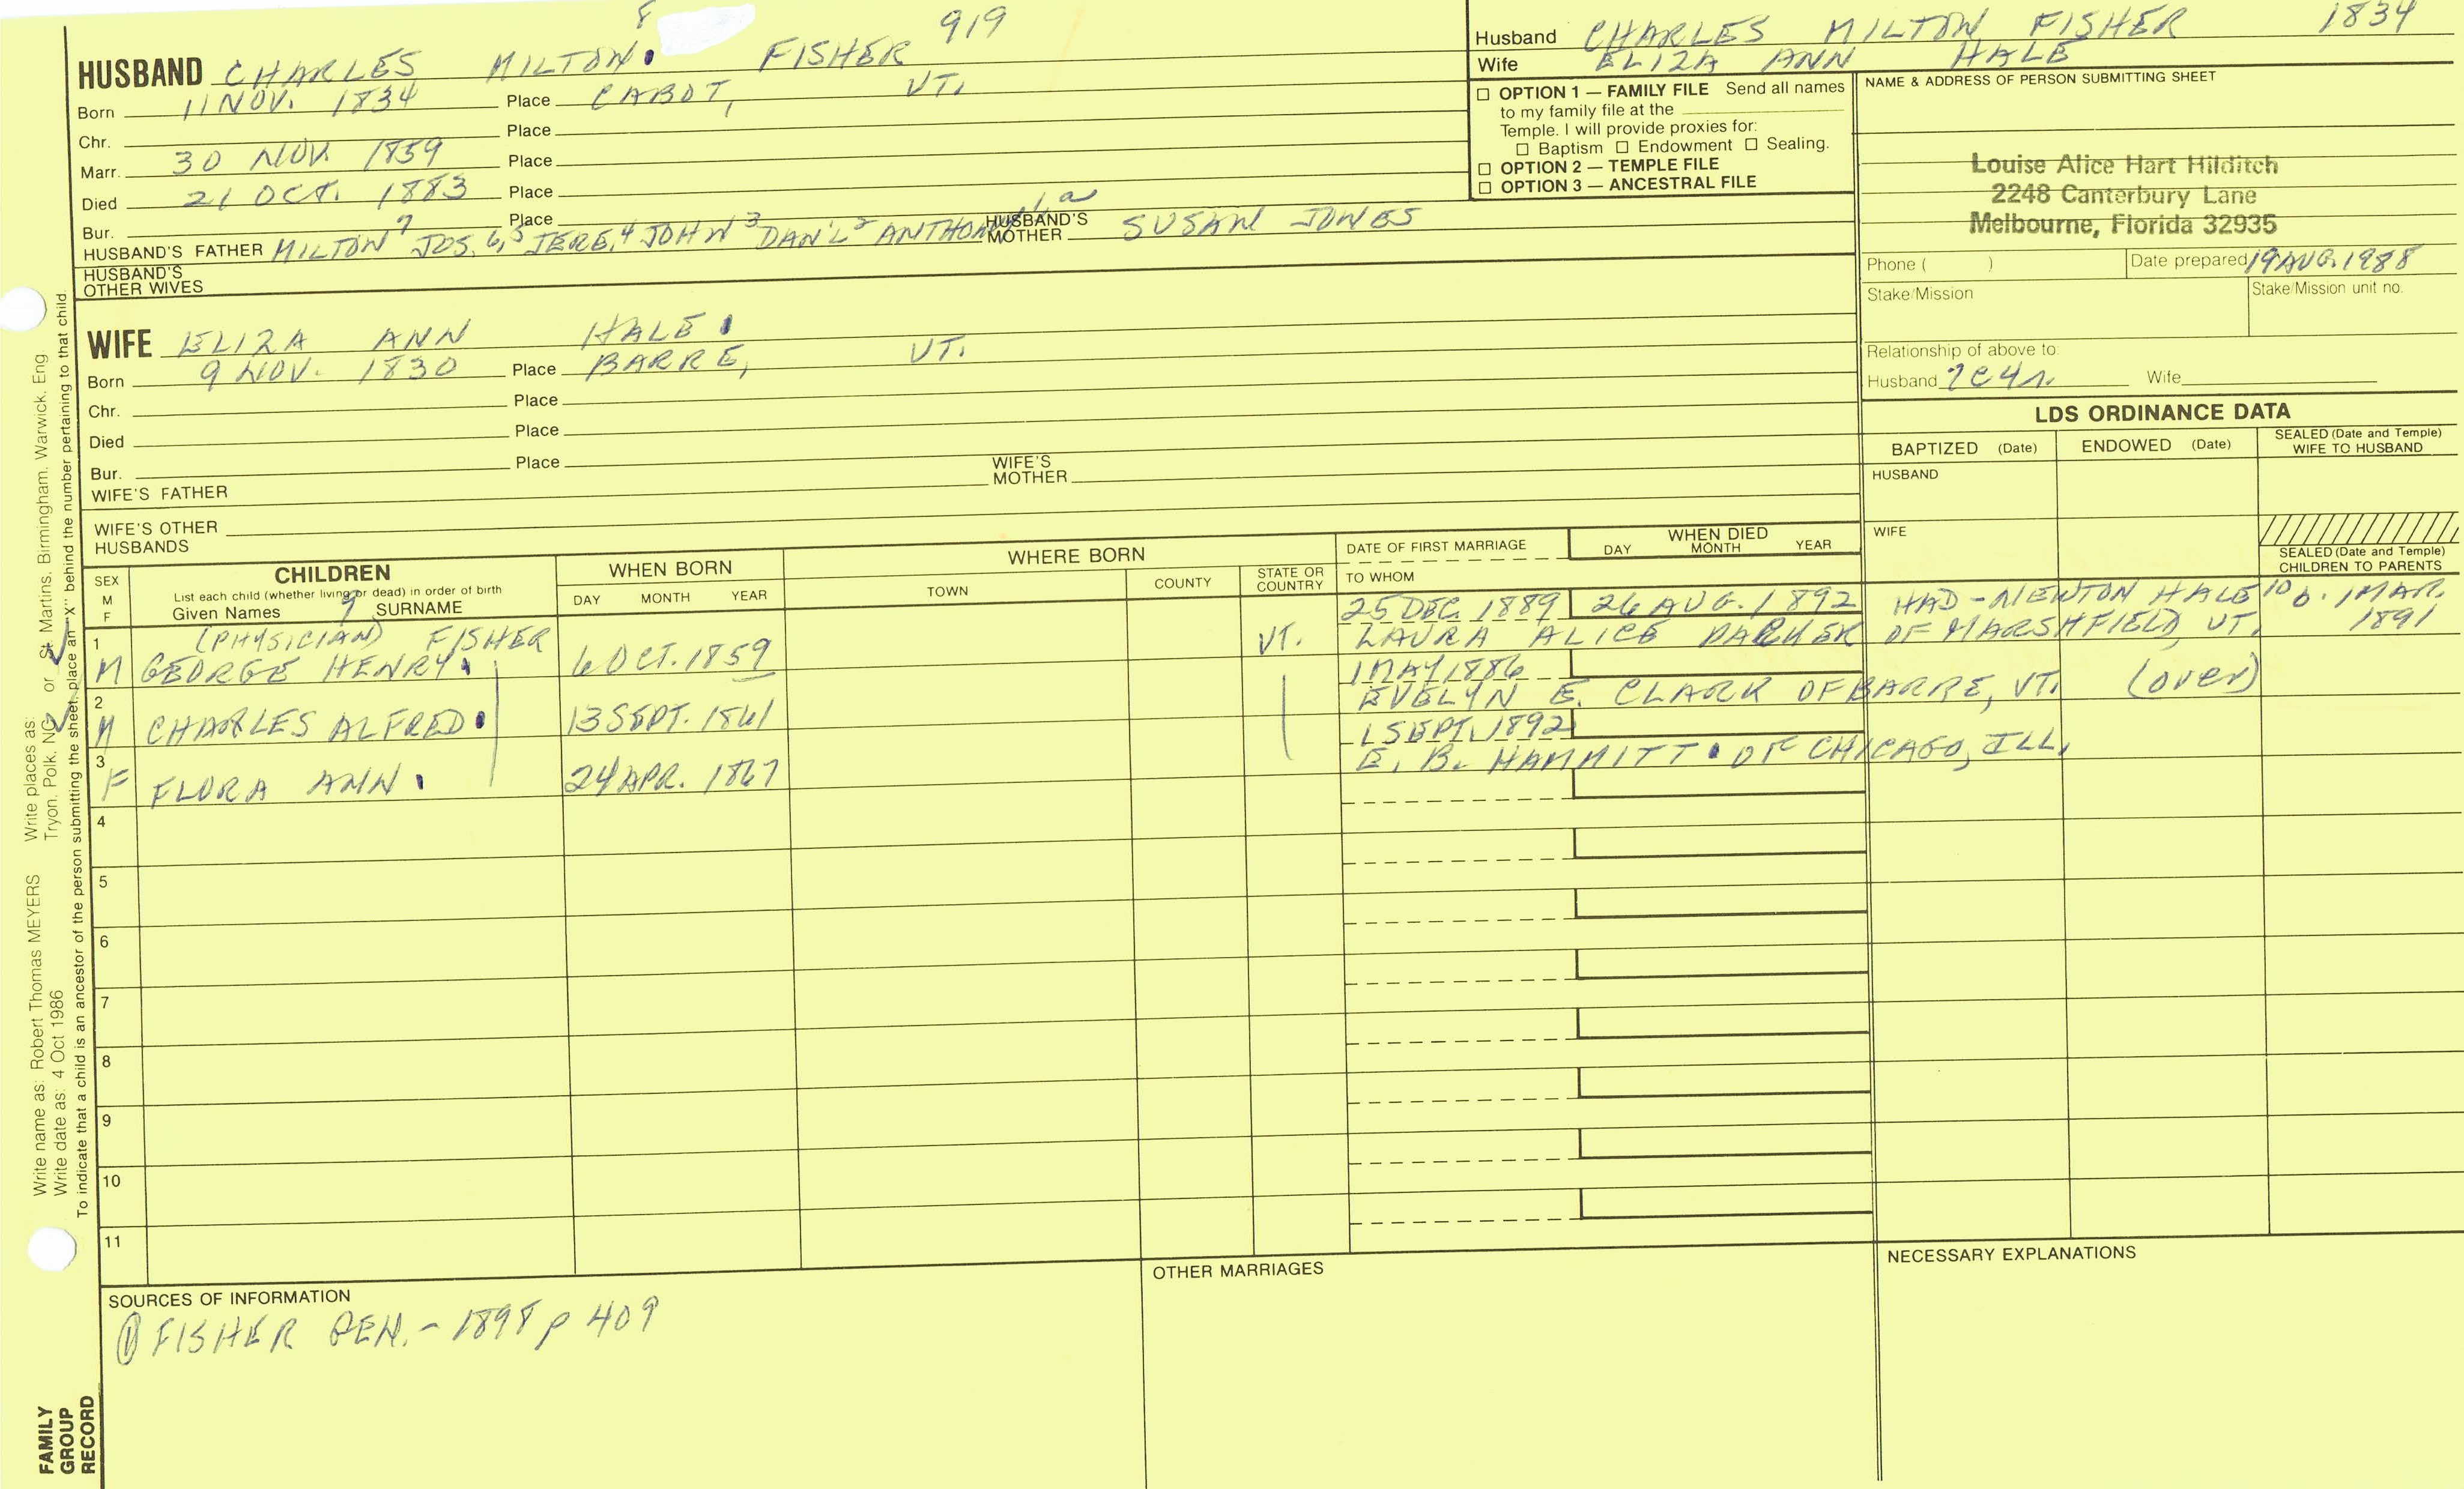 8 919
HUSBAND CHARLES MILTON. FISHER
Born 11 NOV. 1834 Place CABOT, VT.
Chr. Place
Marr. 30 NOV. 1859 Place
Died 21 OCT. 1883 Place
Bur. Place
HUSBAND'S FATHER MILTON 7 JOS. 6,5 JERE, 4 JOHN 3 DAN'L 2 ANTHONY 1,a HUSBAND'S MOTHER SUSAN JONES
HUSBAND'S
OTHER WIVES
WIFE ELIZA ANN HALE.
Born 9 NOV. 1830 Place BARRE, VT.
Chr. Place
Died Place
Bur. Place
WIFE'S FATHER WIFE'S MOTHER
WIFE'S OTHER
HUSBANDS
Husband CHARLES MILTON FISHER 1834
Wife ELIZA ANN HALE
☐ OPTION 1 — FAMILY FILE Send all names
to my family file at the
Temple. I will provide proxies for:
☐ Baptism ☐ Endowment ☐ Sealing.
☐ OPTION 2 — TEMPLE FILE
☐ OPTION 3 — ANCESTRAL FILE
NAME & ADDRESS OF PERSON SUBMITTING SHEET
Louise Alice Hart Hilditch
2248 Canterbury Lane
Melbourne, Florida 32935
Phone ( ) Date prepared 19 AUG. 1988
Stake/Mission Stake/Mission unit no.
Relationship of above to:
Husband 7C4r. Wife
LDS ORDINANCE DATA
BAPTIZED (Date) ENDOWED (Date) SEALED (Date and Temple)
WIFE TO HUSBAND
HUSBAND
WIFE
SEALED (Date and Temple)
CHILDREN TO PARENTS
SEX
M
F
CHILDREN
List each child (whether living or dead) in order of birth
Given Names 9 SURNAME
WHEN BORN
DAY MONTH YEAR
WHERE BORN
TOWN COUNTY STATE OR
COUNTRY
DATE OF FIRST MARRIAGE
TO WHOM
WHEN DIED
DAY MONTH YEAR
25 DEC. 1889 26 AUG. 1892 HAD - NEWTON HALE 10 b. 1 MAR.
1 (PHYSICIAN) FISHER VT. LAURA ALICE PARKER OF MARSHFIELD, VT. 1891
M GEORGE HENRY. 6 OCT. 1859
1 MAY 1886
2 EVELYN E. CLARK OF BARRE, VT. (over)
M CHARLES ALFRED. 13 SEPT. 1861
1 SEPT. 1892
3 E. B. HAMMITT. OF CHICAGO, ILL.
F FLORA ANN. 24 APR. 1867
4
5
6
7
8
9
10
11
SOURCES OF INFORMATION
① FISHER GEN. - 1898 p 409
OTHER MARRIAGES
NECESSARY EXPLANATIONS
FAMILY
GROUP
RECORD
Write name as: Robert Thomas MEYERS Write places as: Tryon, Polk, NC or St. Martins, Birmingham, Warwick, Eng
Write date as: 4 Oct 1986
To indicate that a child is an ancestor of the person submitting the sheet, place an "X" behind the number pertaining to that child.